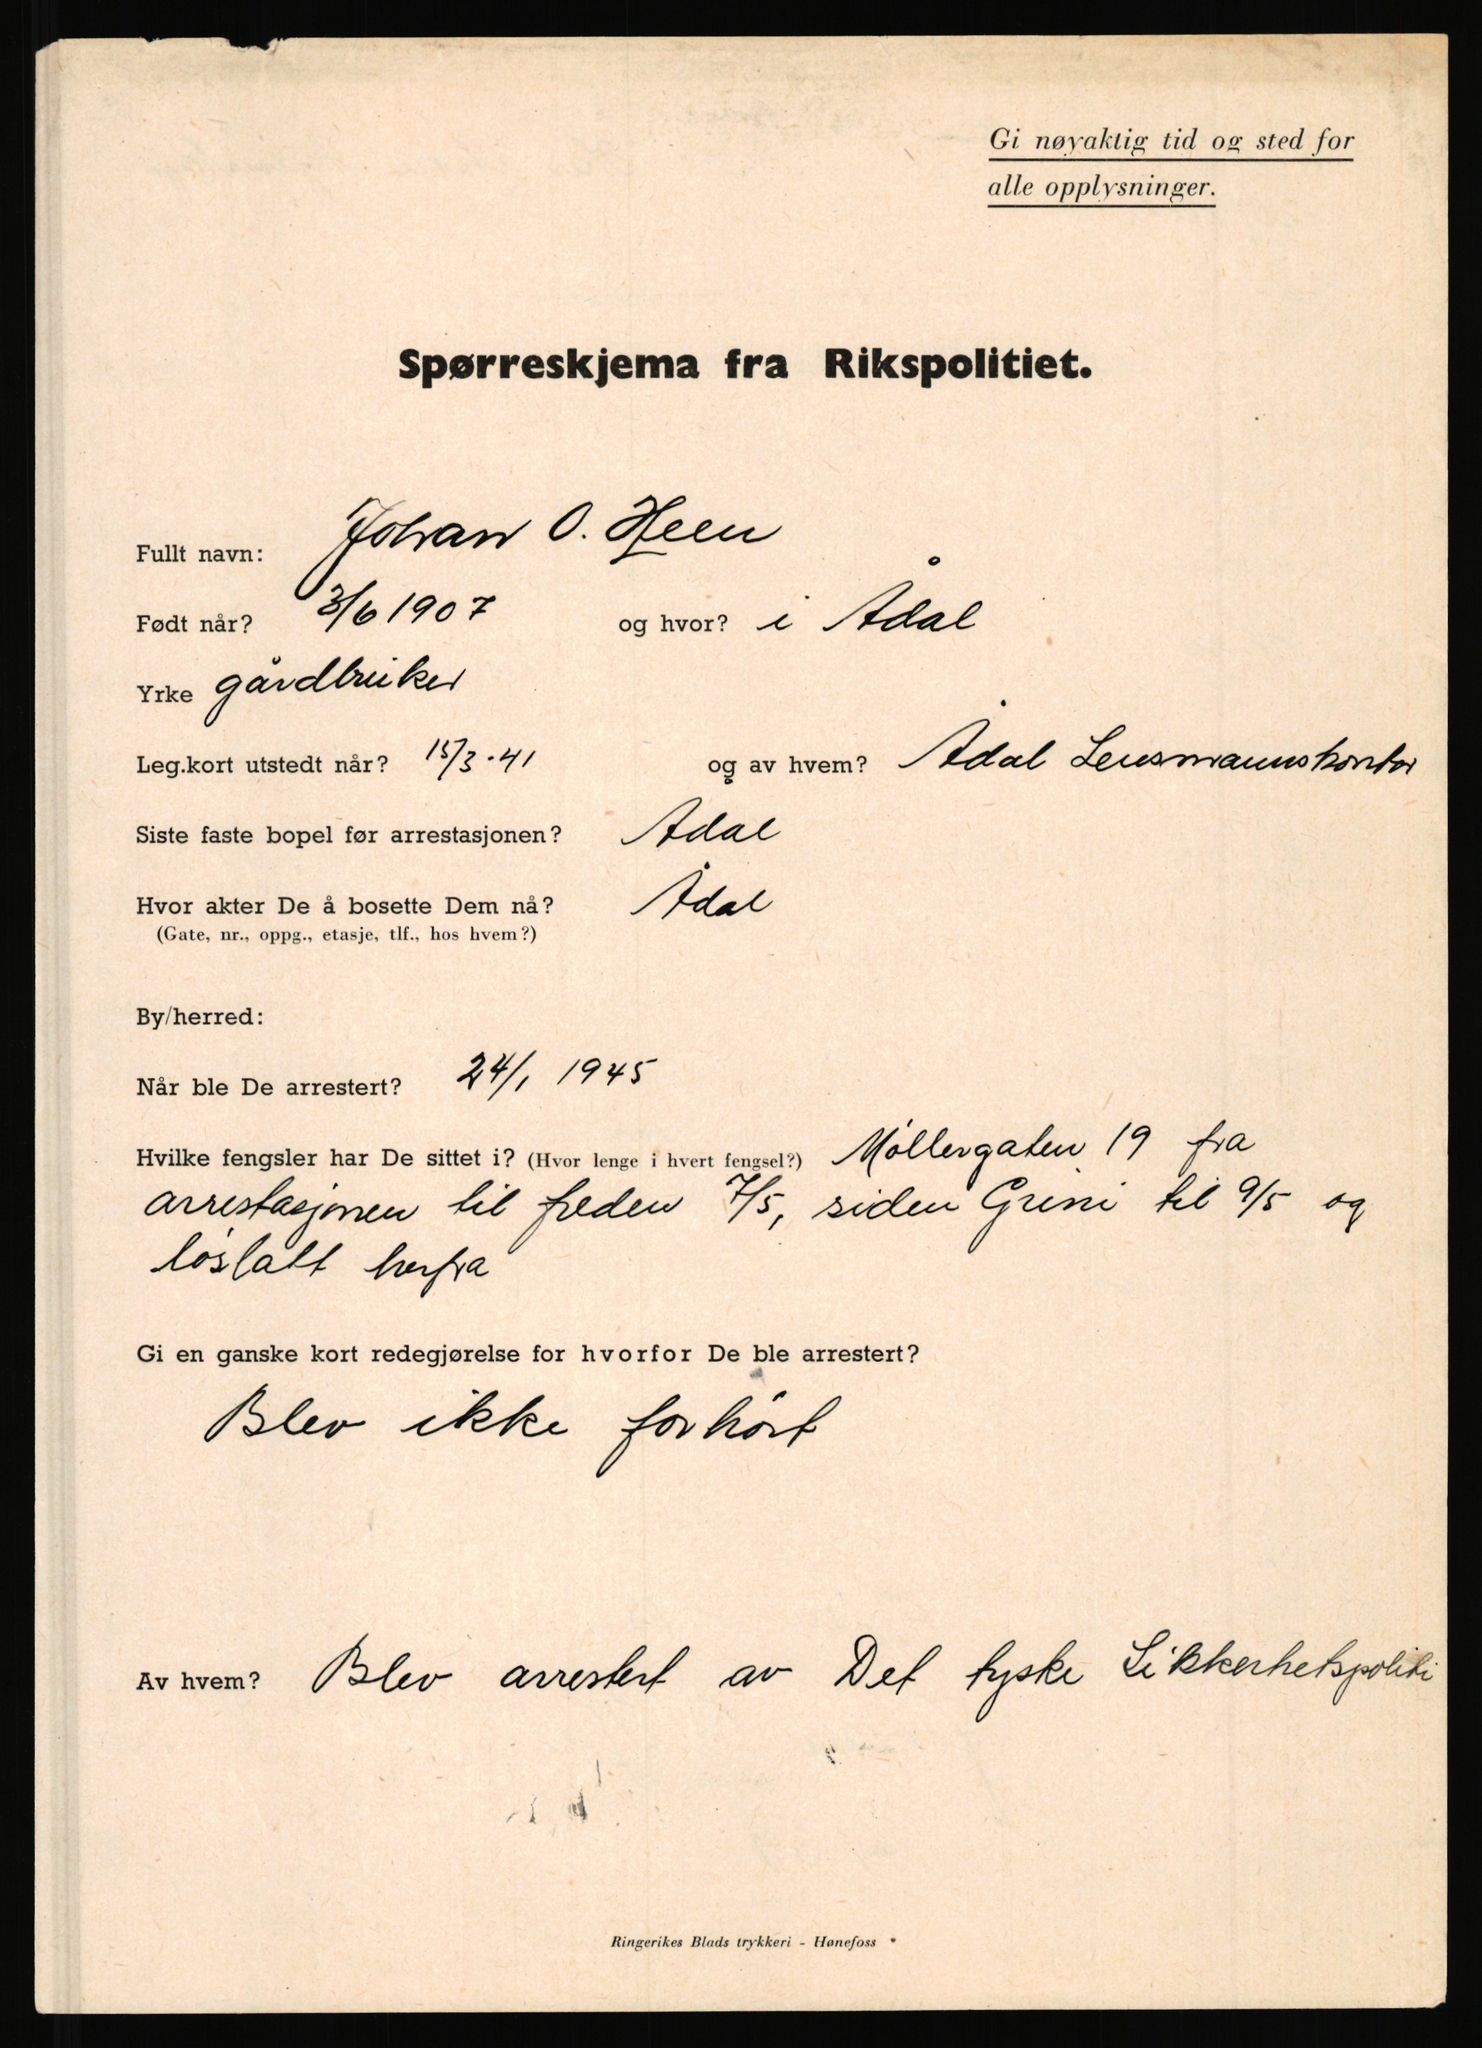 Gi nøyaktig tid og sted for
alle opplysninger.
Spørreskjema fra Rikspolitiet.
Fullt navn: Johan O. Heen
Født når? 3/6 1907 og hvor? i Ådal
Yrke gårdbruker
Leg.kort utstedt når? 15/3-41 og av hvem? Ådal Lensmannskontor
Siste faste bopel før arrestasjonen? Ådal
Hvor akter De å bosette Dem nå? Ådal
(Gate, nr., oppg., etasje, tlf., hos hvem?)
By/herred:
Når ble De arrestert? 24/1 1945
Hvilke fengsler har De sittet i? (Hvor lenge i hvert fengsel?) Møllergaten 19 fra
arrestasjonen til freden 7/5, siden Grini til 9/5 og
løslatt herfra
Gi en ganske kort redegjørelse for hvorfor De ble arrestert?
Blev ikke forhørt
Av hvem? Blev arrestert av Det tyske Sikkerhetspoliti
Ringerikes Blads trykkeri - Hønefoss